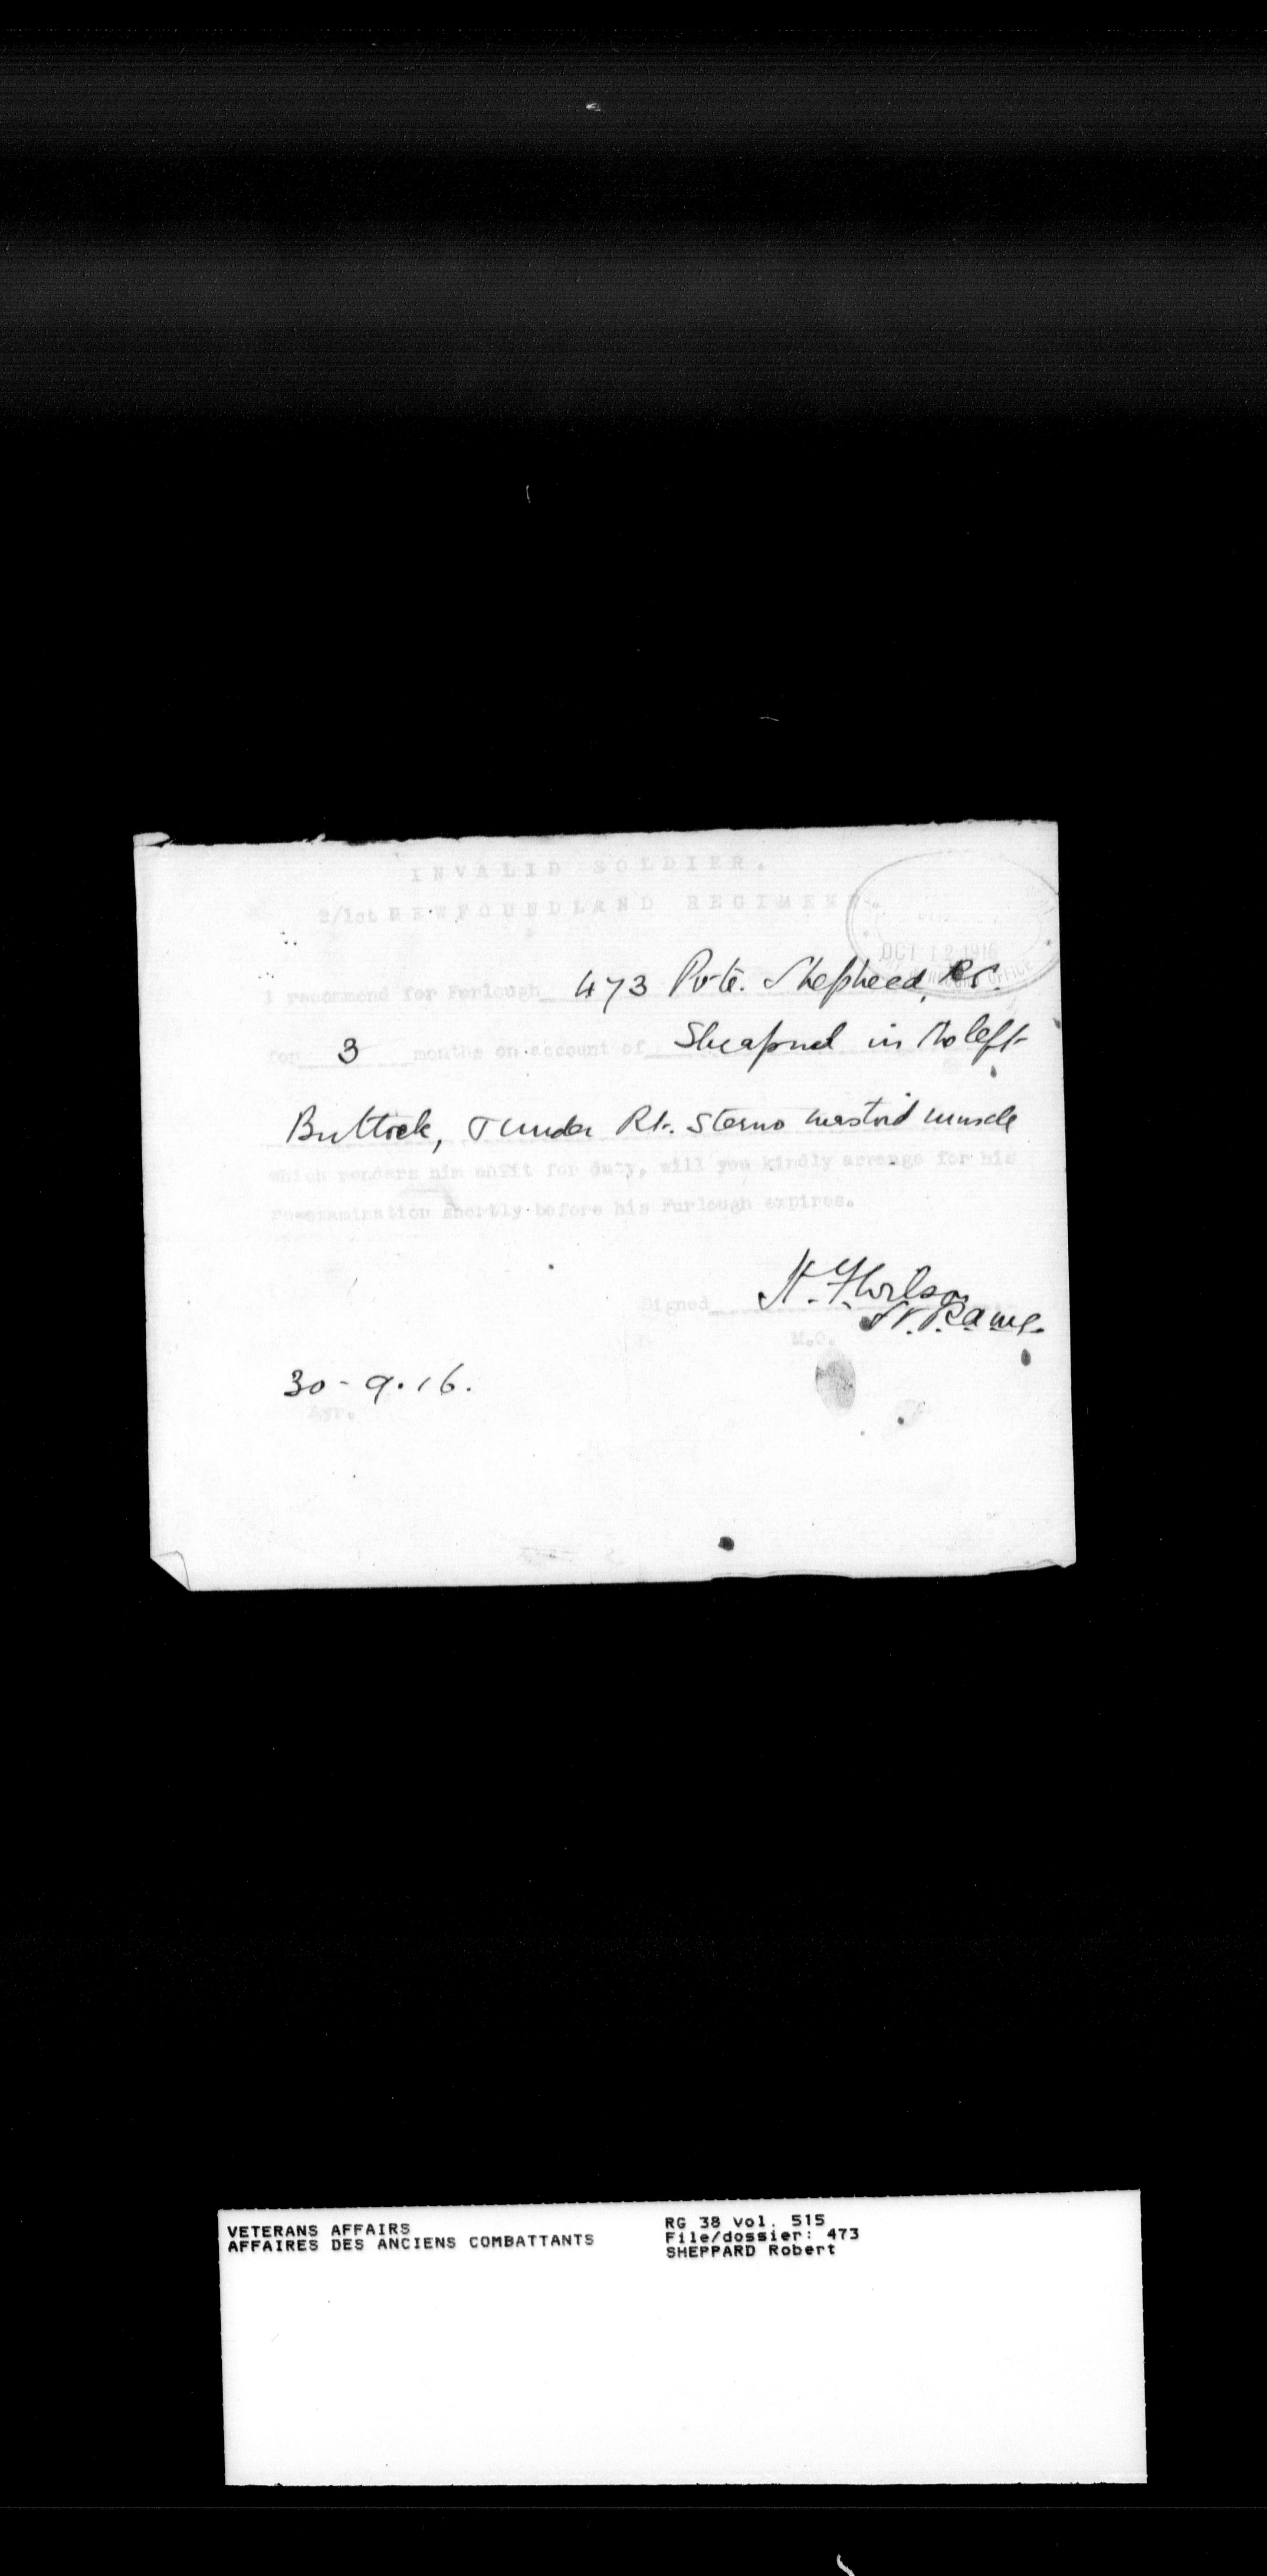 INVALID SOLDIER.
2/1st NEWFOUNDLAND REGIMENT.
OCT 12 1916
OFFICE
I recommend for Furlough 473 Pvte. Shepherd, R.
for 3 months on account of Shrapnel in the left
Buttock, & under Rt. Sterno mastoid muscle
which renders him unfit for duty, will you kindly arrange for his
re-examination shortly before his Furlough expires.
Signed H. F. Wilson
Lt. R.A.M.C.
M.O.
30-9.16.
Ayr.
VETERANS AFFAIRS
AFFAIRES DES ANCIENS COMBATTANTS
RG 38 vol. 515
File/dossier: 473
SHEPPARD Robert